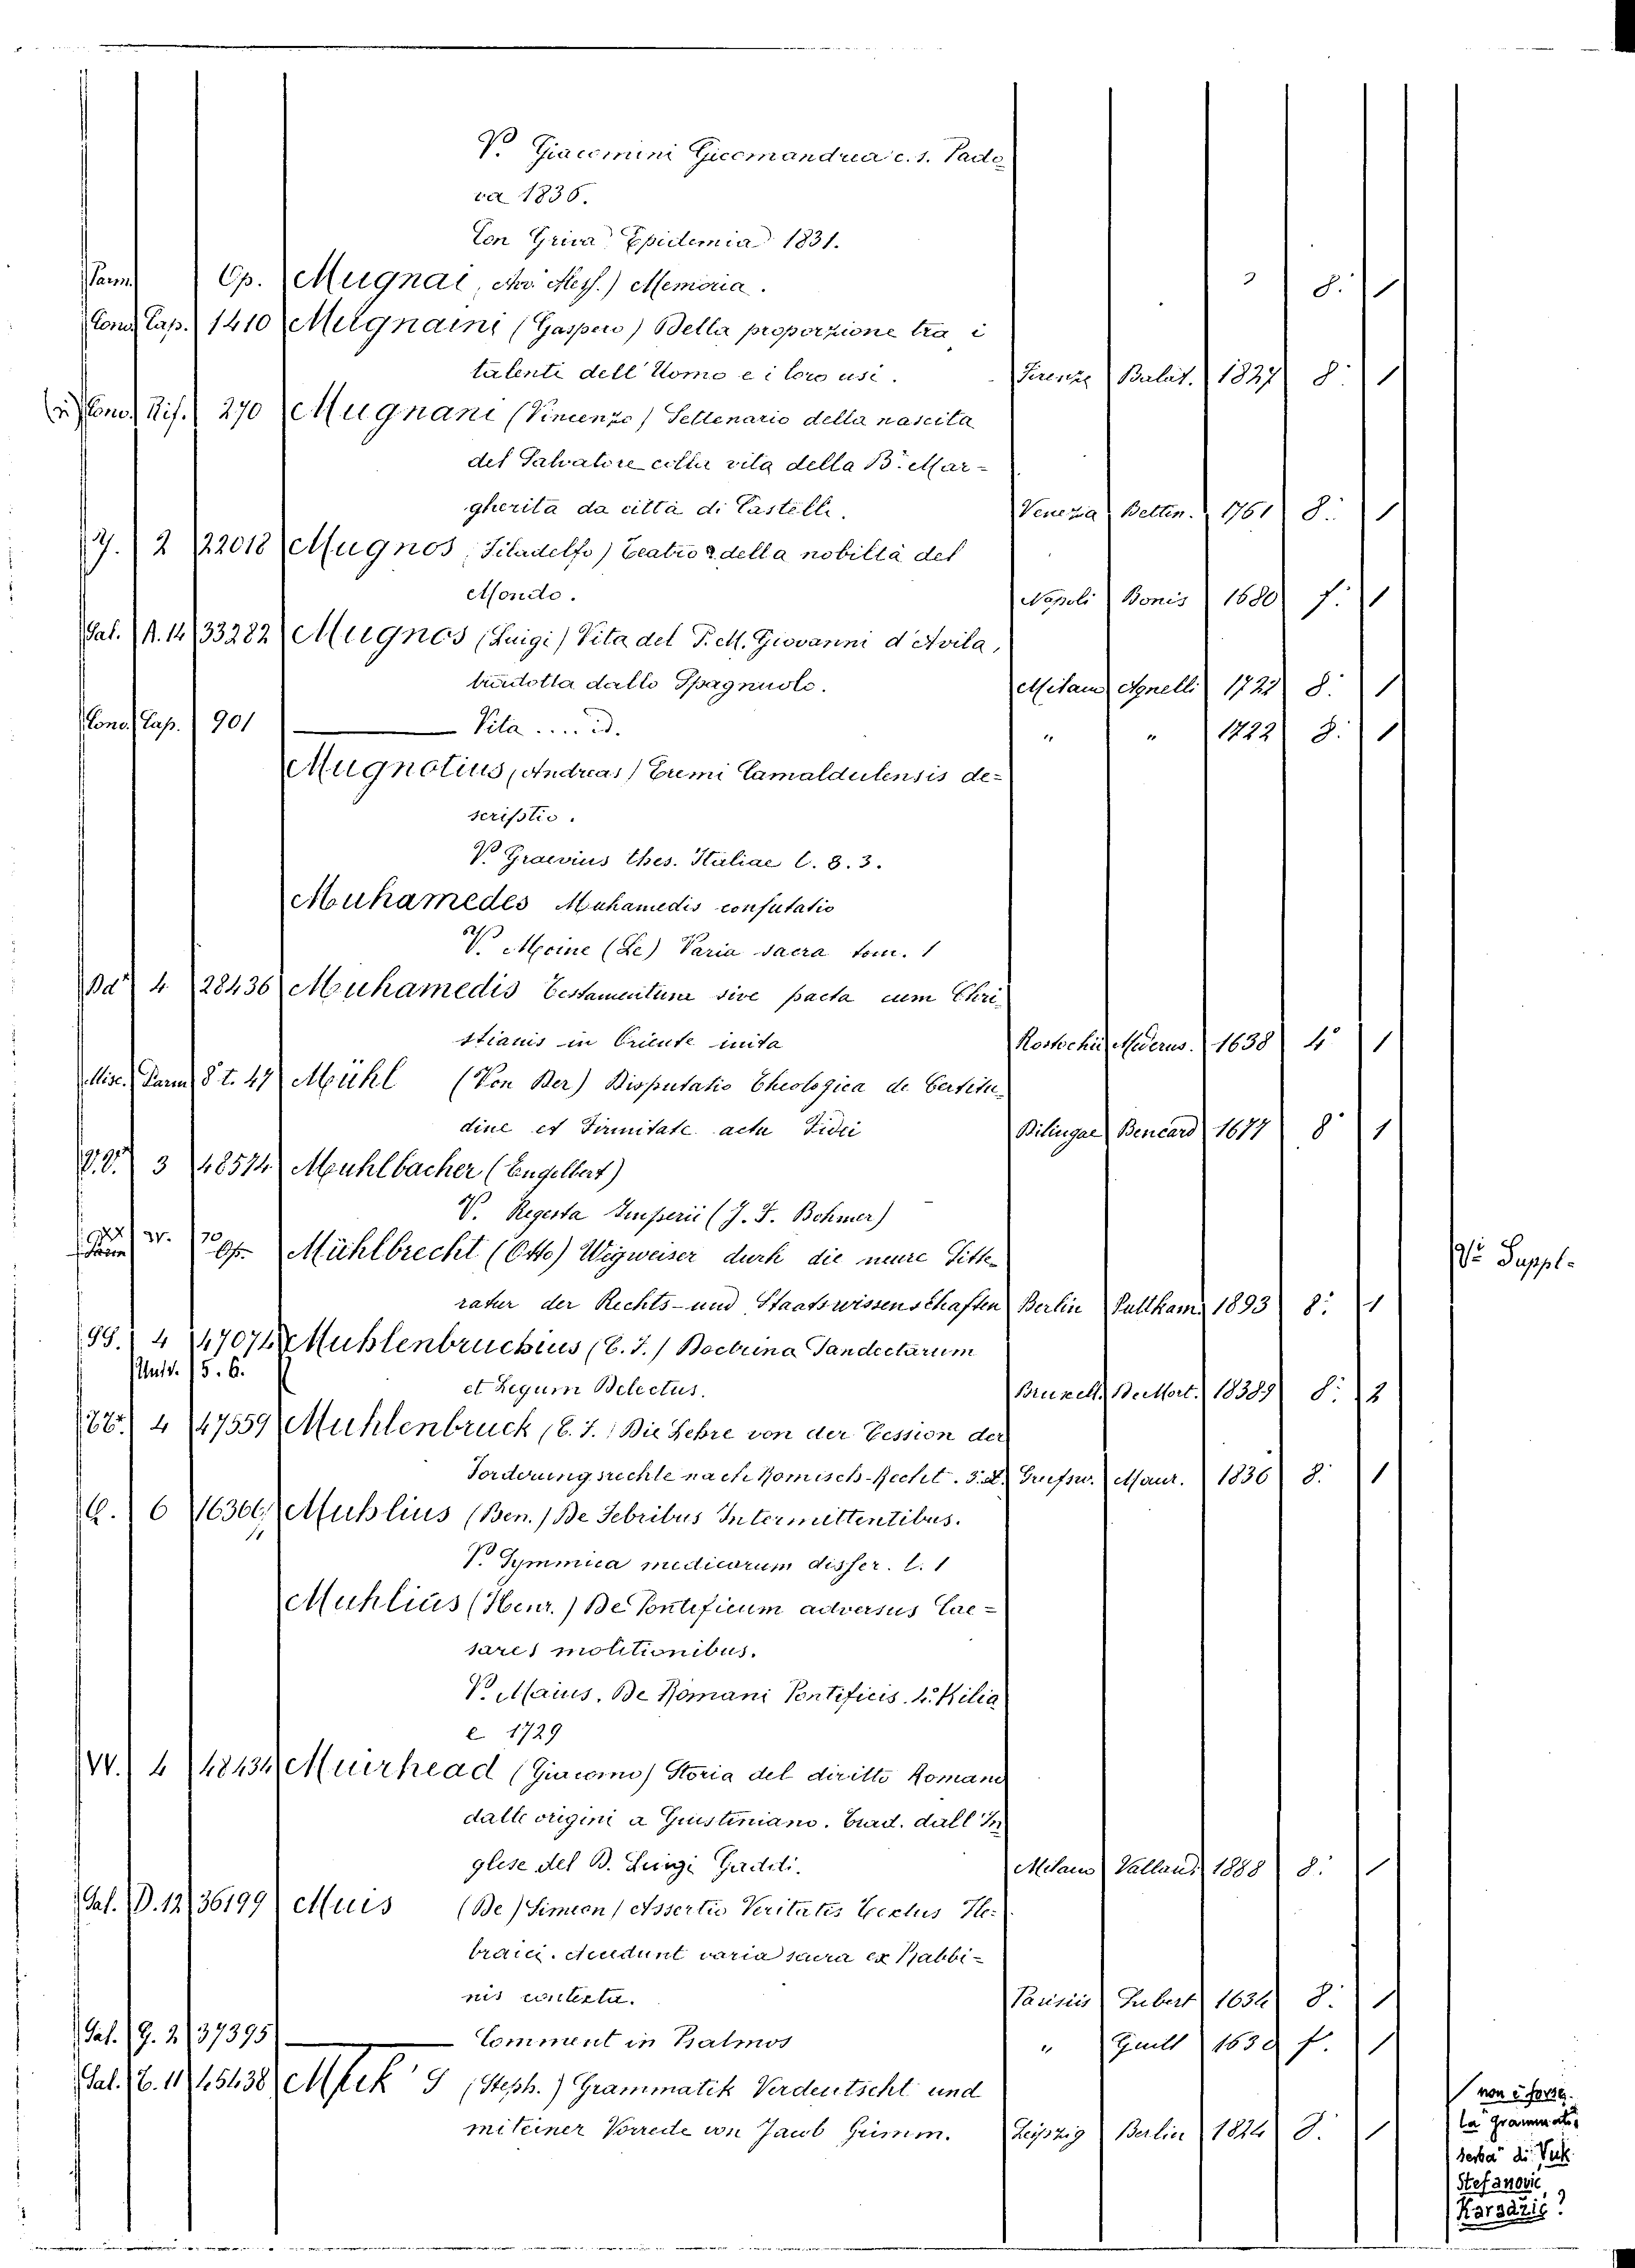 V. Giacomini Giccmandrea c. s. Pado
va 1836.
Con Griva Epidemia 1831.
Parm. Op. Mugnai, Memoria. 8. 1
Cono. Cap. 1410 Mugnaini (Gaspero) Della proporzione tra i
talenti dell'Uomo e i loro usi. Firenze Balat. 1827 8. 1
Cono. Rif. 270 Mugnani (Vincenzo) Settenario della nascita
del Salvatore colla vita della B. Mar=
gherita da città di Castello. Venezia Bettin. 1761 8. 1
Y. 2 22018 Mugnos, Filadelfo) Teatro della nobiltà del
Mondo. Napoli Bonis 1680 f. 1
Sal. A. 14 33282 Mugnos (Luigi) Vita del P. M. Giovanni d'Avila,
tradotta dallo Spagnuolo. Milano Agnelli 1722 8. 1
Cono. Cap. 901 Vita .... id. " " 1722 8. 1
Mugnotius, (Andreas) Eremi Camaldulensis de=
scriptio.
V. Graevius thes. Italiae t. 8. 3.
Muhamedes Muhamedis confutatio
V. Moine (Le) Varia sacra tom. 1
4 28436 Muhamedis Testamentum sive pacta cum Chri
stianis in Oriente inita Rostochii Mederus. 1638 4° 1
Misc. Parm 8 t. 47 Mühl (Von Der) Disputatio Theologica de Certitu
dine et Firmitate acta Fidei Dilingae Bencard 1677 8° 1
V.V. 3 48574 Muhlbacher (Engelbert)
V. Regesta Imperii (J. F. Bohmer)
70 Op. Mühlbrecht (Otto) Wigweiser durch die neure Litte
ratur der Rechts- und Staatswissenschaften Berlin Puttkam 1893 8. 1
V.i Suppl.
99. 4 47074 Muhlenbruchius (C. F.) Doctrina Pandectarum
Univ. 5. 6.
et Legum Delectus. Bruxell. De Mort. 18389 8. 2
4 47559 Muhlenbruck (C. F.) Die Lehre von der Cession der
Forderungsrechte nach Romisch-Recht. 3. A. Greifsw. Maur. 1836 8. 1
Q. 6 16366 Muhlius (Ben.) De Febribus Intermittentibus.
V. Gymmica medicorum disser. t. 1
Muhlius (Henr.) De Pontificum adversus Cae=
sares molitionibus.
V. Maius. De Romani Pontificis. 4. Kilia
e 1729
VV. 4 48434 Muirhead (Giacomo) Storia del diritto Romano
dalle origini a Giustiniano. Trad. dall'In
glese del D. Luigi Gaddi. Milano Vallard. 1888 8. 1
Sal. D. 12 36199 Muis (De) Simeon) Assertio Veritatis Textus He=
braici. Accedunt varia sacra ex Rabbi=
nis contexta. Parisiis Jubert 1634 8. 1
Sal. G. 2 37395 Comment in Psalmos " Guill 1630 f. 1
Sal. C. 11 45438 (Steph.) Grammatik Verdeutscht und
miteiner Vorrede von Jacob Grimm. Leipzig Berlin 1824 8. 1
non è forse
la gramma
serba di Vuk
Stefanovic
Karadzić?